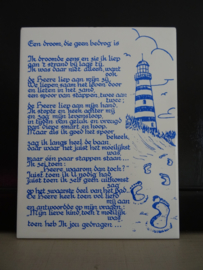 Een droom, die geen bedrog is
Ik droomde eens en zie ik liep
aan 't strand bij lage tij.
Ik was daar niet alleen, want
ook
de Heere liep aan mijn zij.
We liepen saam het leven door
en lieten in het zand
een spoor van stappen, twee aan
twee;
de Heere liep aan mijn hand.
Ik stopte en keek achter mij
en zag mijn levensloop
in tijden van geluk en vreugd
van diepe smart en hoop.
Maar als ik goed het spoor
bekeek,
zag ik langs heel de baan,
daar waar het juist het moeilijkst
was,
maar één paar stappen staan ...
Ik zei toen:
Heere, waarom dan toch?
Juist toen ik U nodig had,
juist toen ik zelf geen uitkomst
zag
op het zwaarste deel van het pad.
De Heere keek toen vol liefd'
mij aan
en antwoordde op mijn vragen:
Mijn lieve kind, toen 't moeilijk
was,
toen heb Ik jou gedragen ...